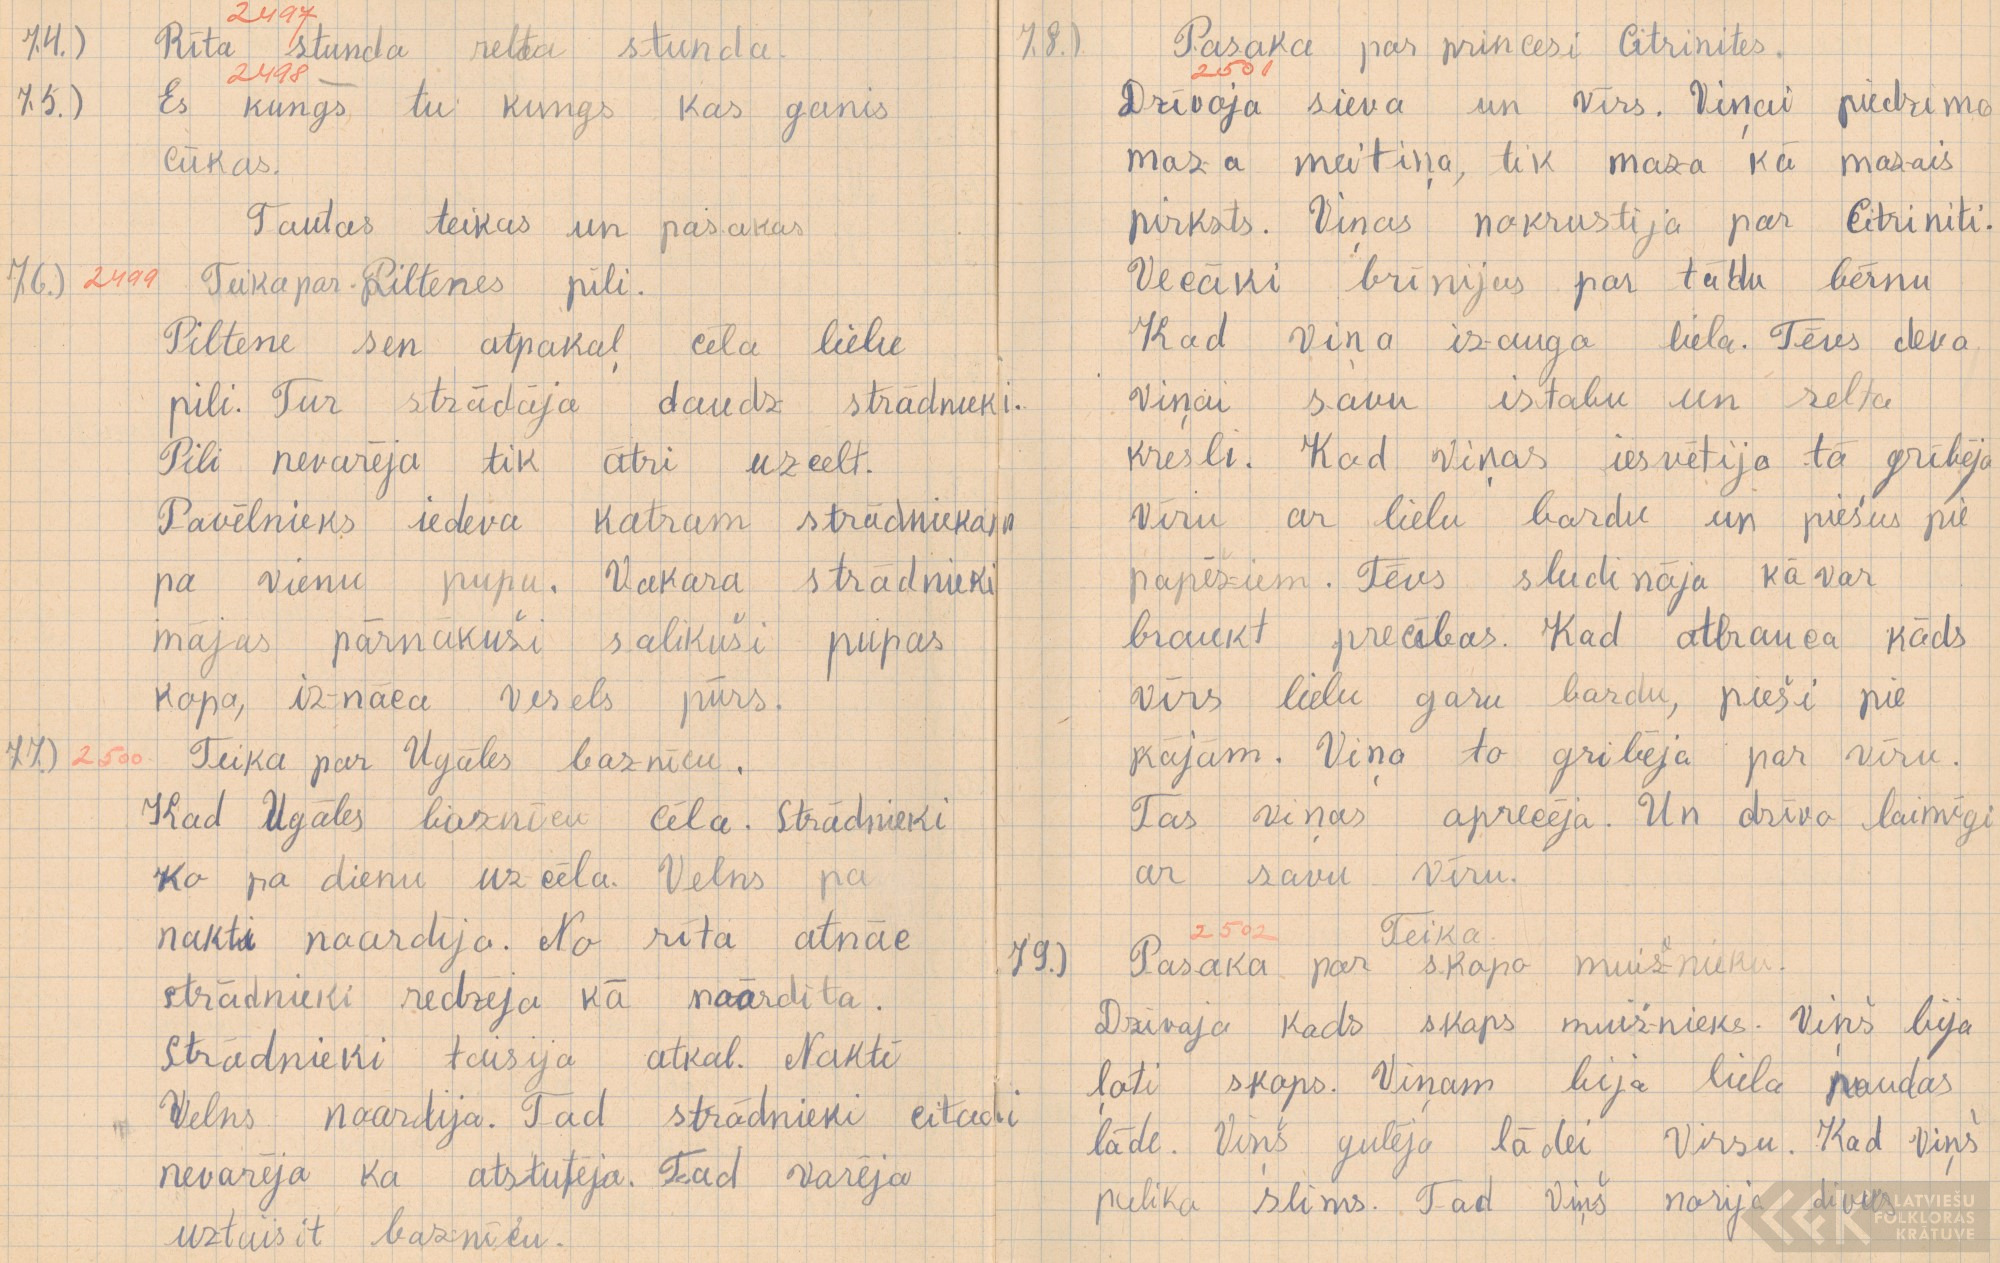 2497
74.) Rīta stunda zelta stunda.
2498
75.) Es kungs tu kungs kas ganis
cūkas.
Tautas teikas un pasakas
76.) 2499 Teika par Piltenes pili.
Piltene sen atpakaļ cēla lielu
pili. Tur strādāja daudz strādnieki.
Pili nevarēja tik ātri uzcelt.
Pavēlnieks iedeva katram strādniekam
pa vienu pupu. Vakara strādnieki
mājas pārnākuši salikuši pupas
kopa, iznāca vesels pūrs.
77.) 2500 Teika par Ugāles baznīcu.
Kad Ugāles baznīcu cēla. Strādnieki
ko pa dienu uzcēla. Velns pa
nakti noardīja. No rīta atnāc
strādnieki redzēja kā noārdīta.
Strādnieki taisija atkal. Naktī
Velns noārdija. Tad strādnieki citadi
nevarēja ka atstutēja. Tad varēja
uztaisīt baznīcu.
78.) Pasaka par princesi Citrinites.
2501
Dzīvoja sieva un vīrs. Viņai piedzima
maza meitiņa, tik maza kā mazais
pirksts. Viņas nokrustija par Citriniti.
Vecāki brīnijas par tādu bērnu
Kad viņa izauga liela. Tēvs deva
viņai savu istabu un zelta
krēsli. Kad viņas iesvētija tā gribēja
vīru ar lielu bardu un piešus pie
papēžiem. Tēvs sludināja kā var
braukt precības. Kad atbrauca kāds
vīrs lielu garu bardu, pieši pie
kājām. Viņa to gribēja par vīru.
Tas viņas aprecēja. Un dzīvo laimīgi
ar savu vīru.
2502 Teika.
79.) Pasaka par skopo muižnieku.
Dzīvoja kads skops muižnieks. Viņš bija
ļoti skops. Viņam bija liela naudas
lāde. Viņš gulēja lādei virsu. Kad viņš
palika slims. Tad viņš norija divus
LATVIEŠU
FOLKLORAS
KRĀTUVE